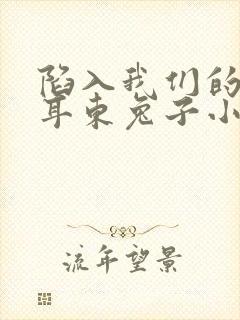 陷入我们的
耳东兔子小
流年望景